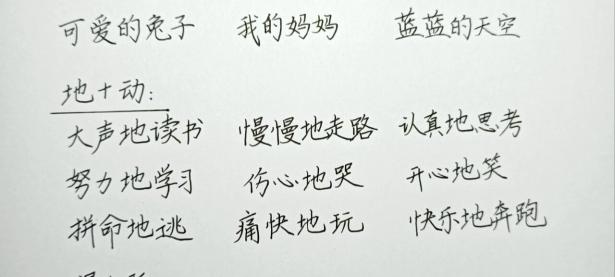 可爱的兔子 我的妈妈 蓝蓝的天空
地+动:
大声地读书 慢慢地走路 认真地思考
努力地学习 伤心地哭 开心地笑
拼命地逃 痛快地玩 快乐地奔跑